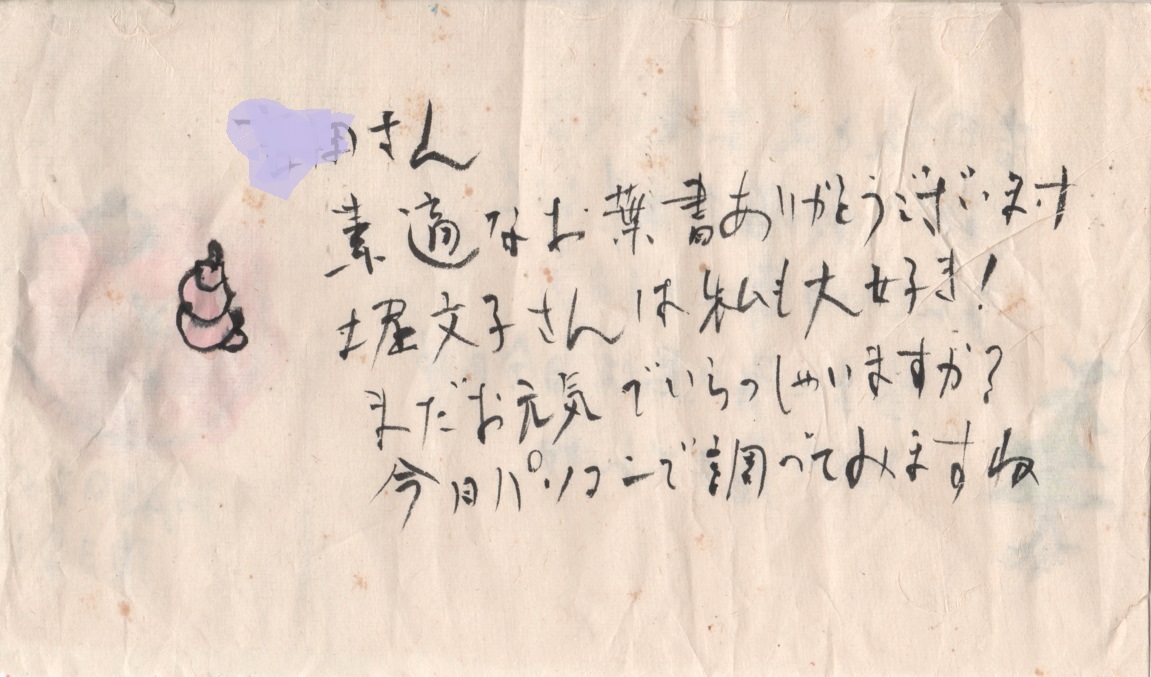 さん
素適なお葉書ありがとうございます
土屋文子さんは私も大好き!
まだお元気でいらっしゃいますか?
今日パソコンで調べてみますね